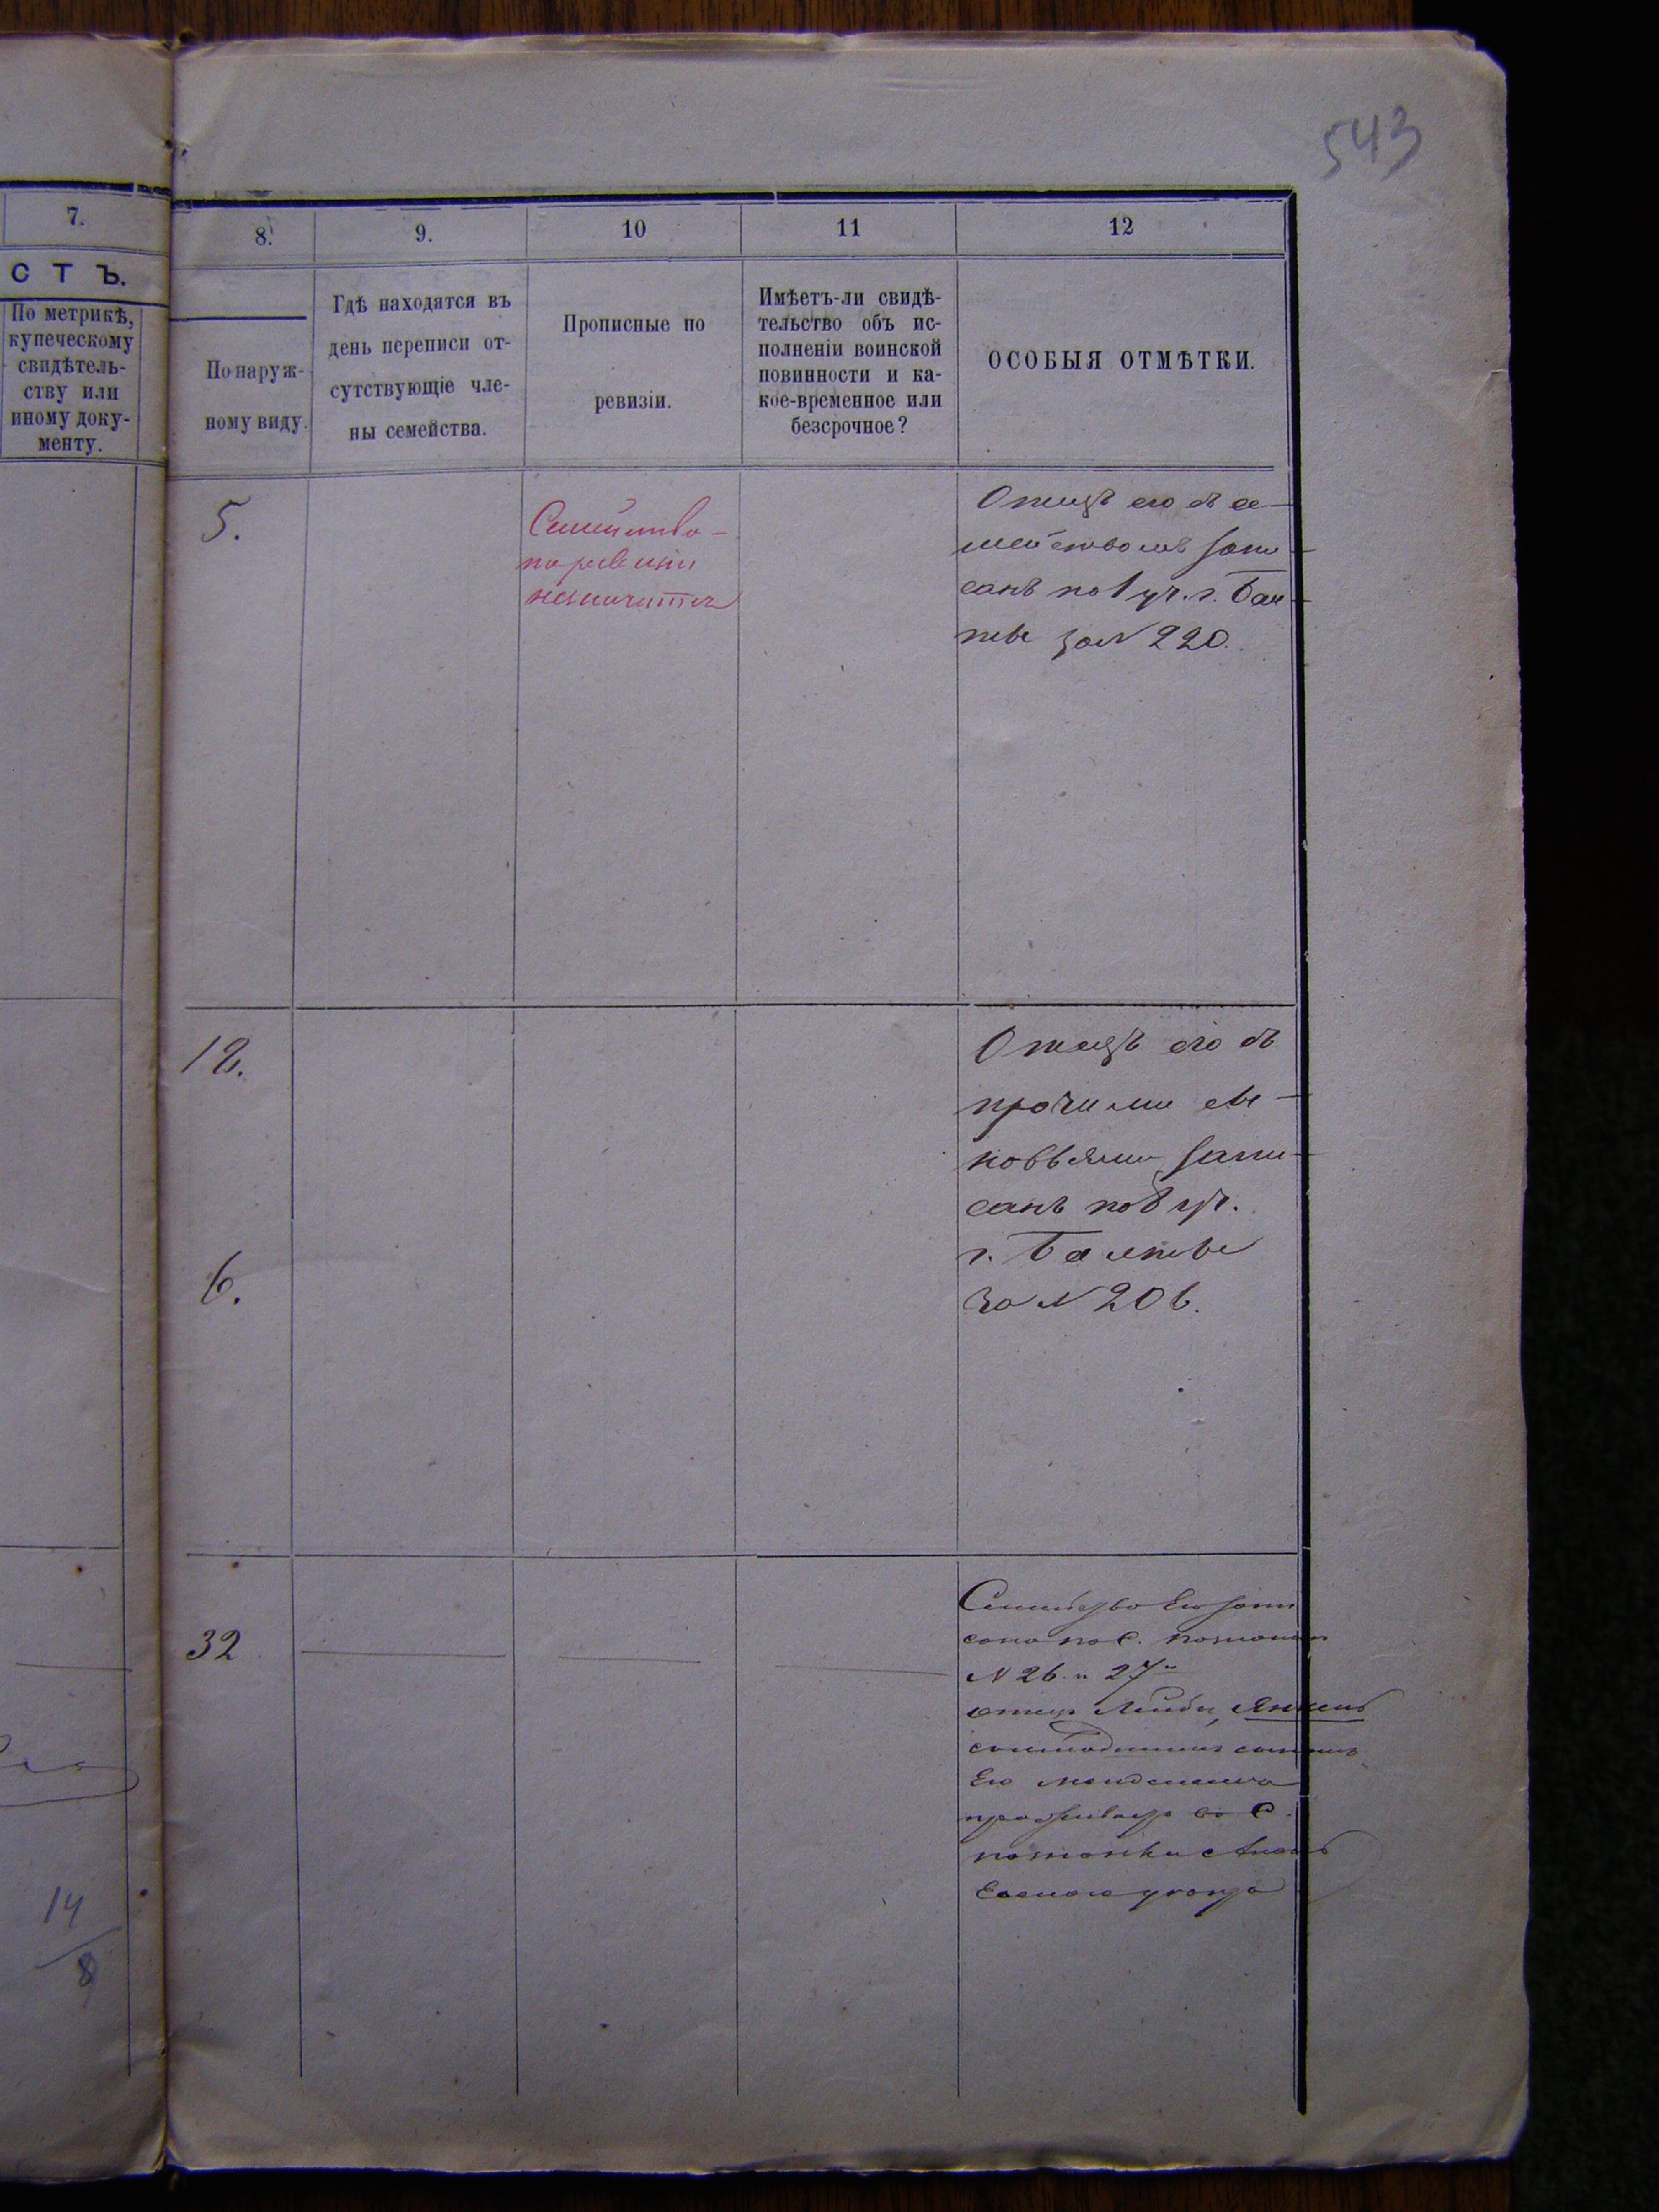 543
7.
8.
9.
10
11
12
СТЪ.
По метрикѣ,
купеческому
свидѣтель-
ству или
иному доку-
менту.
По наруж-
ному виду.
Гдѣ находятся въ
день переписи от-
сутствующіе чле-
ны семейства.
Прописные по
ревизіи.
Имѣетъ-ли свидѣ-
тельство объ ис-
полненіи воинской
повинности и ка-
кое-временное или
безсрочное?
ОСОБЫЯ ОТМѢТКИ.
5.
Семейство
по ревизіи
Отецъ его съ се-
мействомъ запи-
санъ по 1 уч. г. Бал-
тѣ за N 220.
12.
6.
Отецъ его съ
прочими сы-
новьями запи-
санъ по уч.
г. Балтѣ
за N 206.
32
Семейство Его запи
сано по с.
N 26 и 27
отецъ Лейбы, Янкель
Его
проживаетъ въ с.
уѣзда
14
8